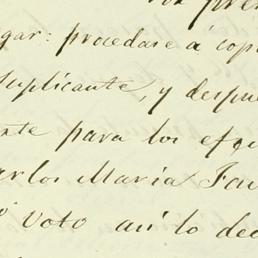 por pre
gar: procedase á cop
suplicante, y despu
nte para los efe
arlos Maria Fa
voto así lo de